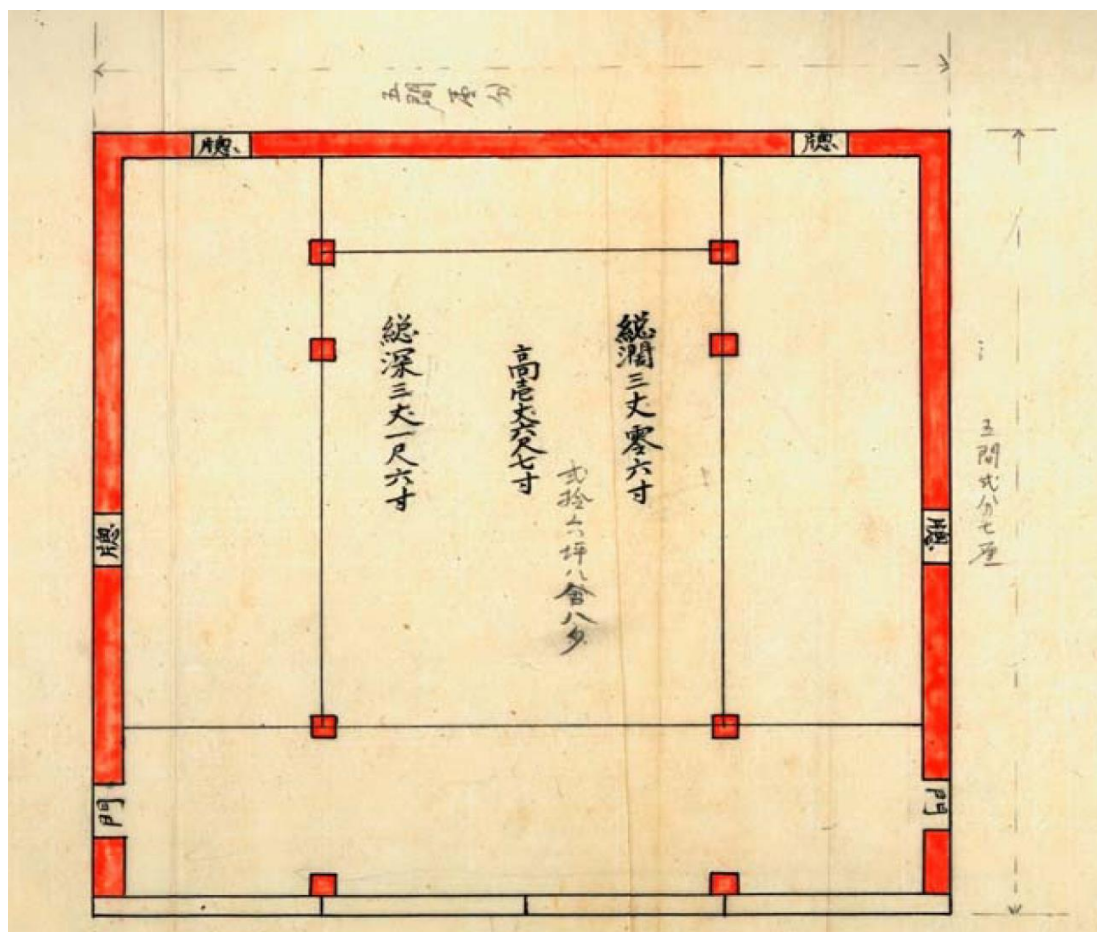 五間壱分
牕
牕
総濶三丈零六寸
高壱丈六尺七寸
弐拾六坪八合八夕
総深三丈一尺六寸
五間弐分七厘
牕
牕
門
門